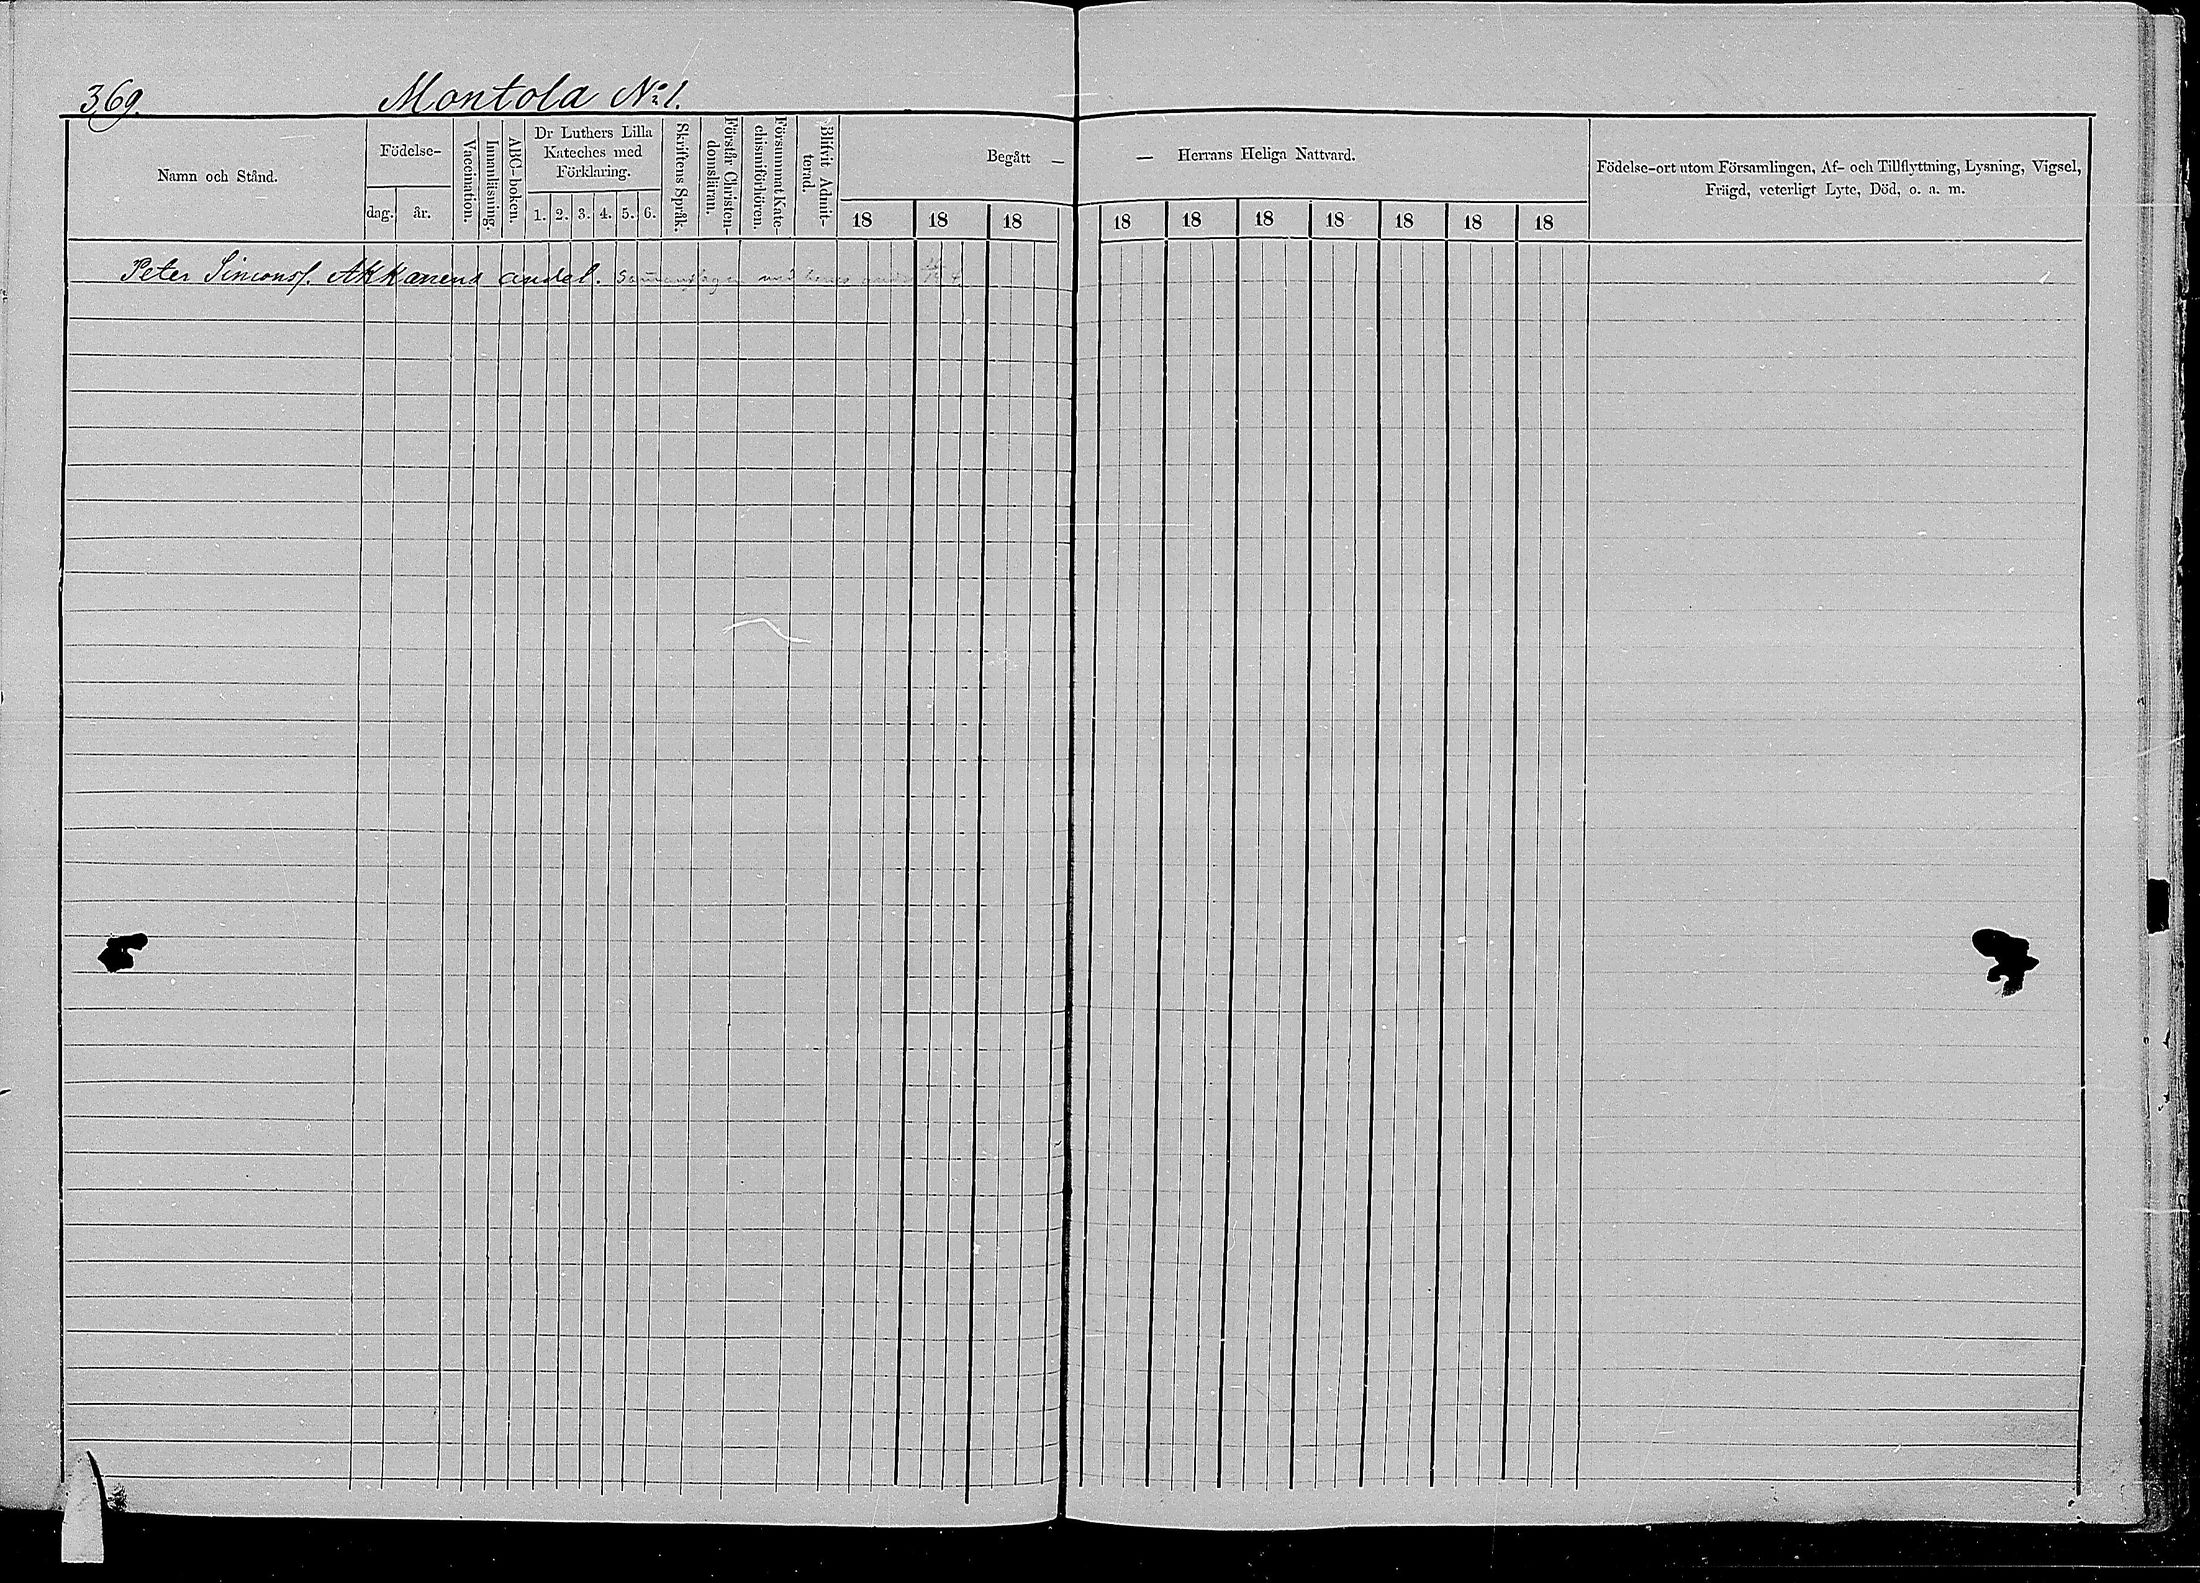 369.
Montola No 1.
Namn och Stånd.
Födelse-
dag.
år.
Vaccination.
Innanläsning.
ABC-boken.
Dr Luthers Lilla
Kateches med
Förklaring.
1. 2. 3. 4. 5. 6.
Skriftens Språk.
Förstår Christen-
domsläran.
Försummat Kate-
chismiförhören.
Blifvit Admit-
terad.
Begått —
— Herrans Heliga Nattvard.
18 18 18 18 18 18 18 18 18 18
Födelse-ort utom Församlingen, Af- och Tillflyttning, Lysning, Vigsel,
Frägd, veterligt Lyte, Död, o. a. m.
Peter Simonss. Akkanens andel. med